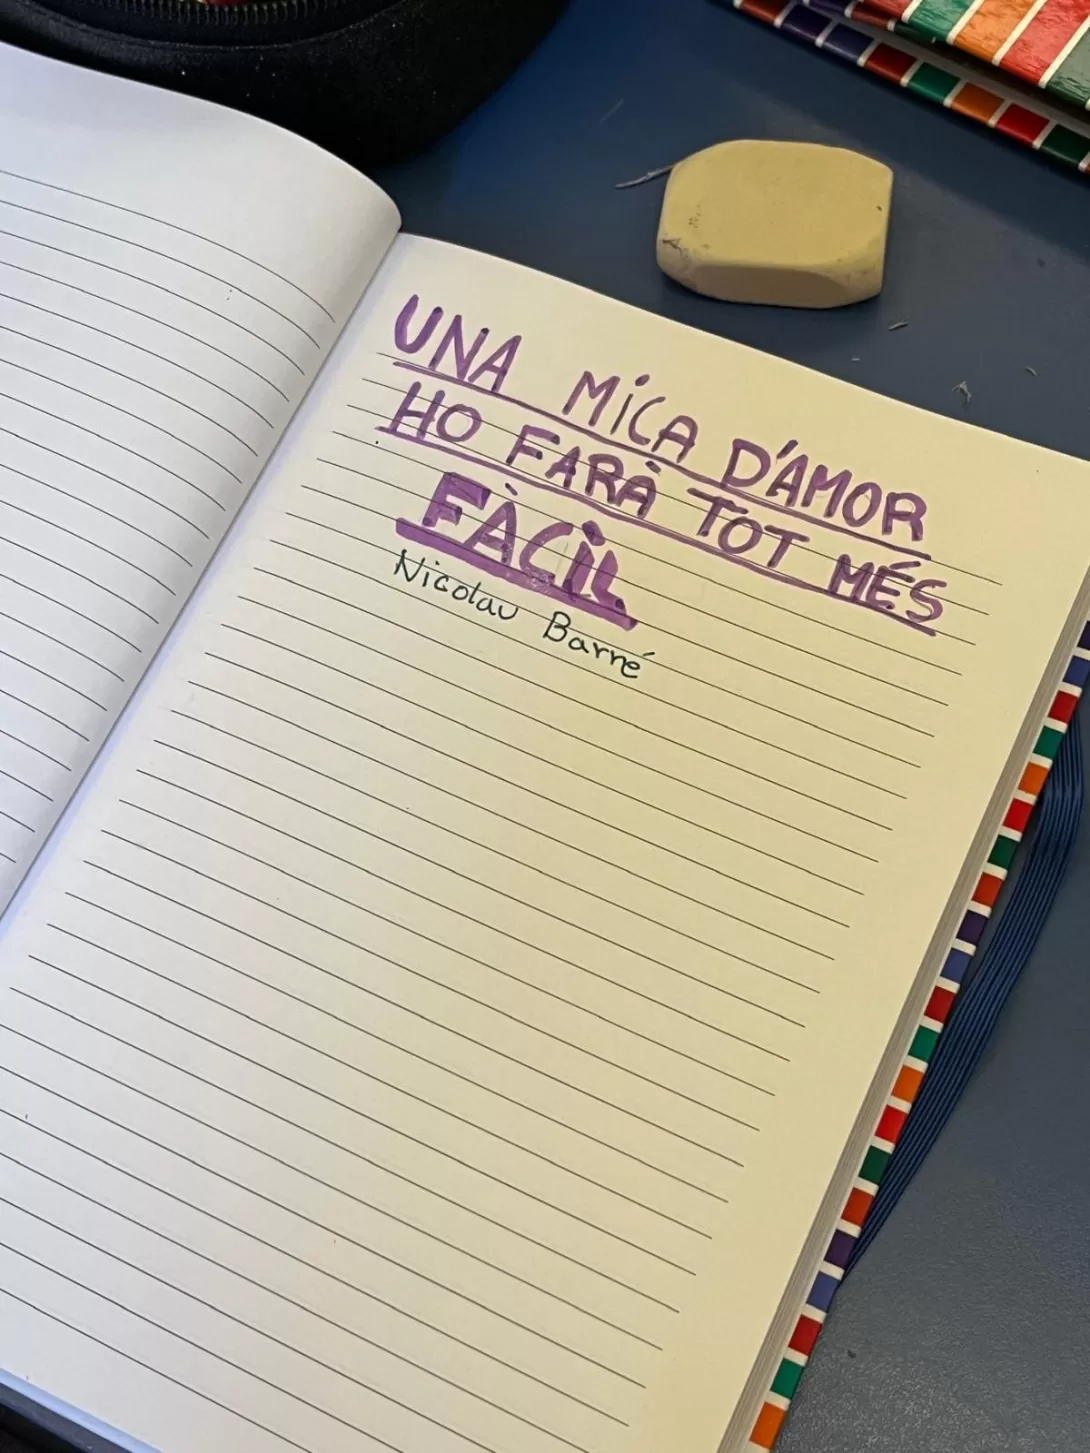 UNA MICA D'AMOR
HO FARÀ TOT MÉS
FÀCIL
Nicolau Barné